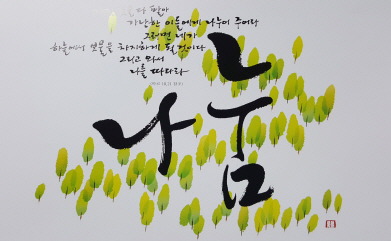 다 팔아
가난한 이들에게 나누어 주어라
그러면 네가
하늘에서 보물을 차지하게 될 것이다
그리고 와서
나를 따르라
나눔